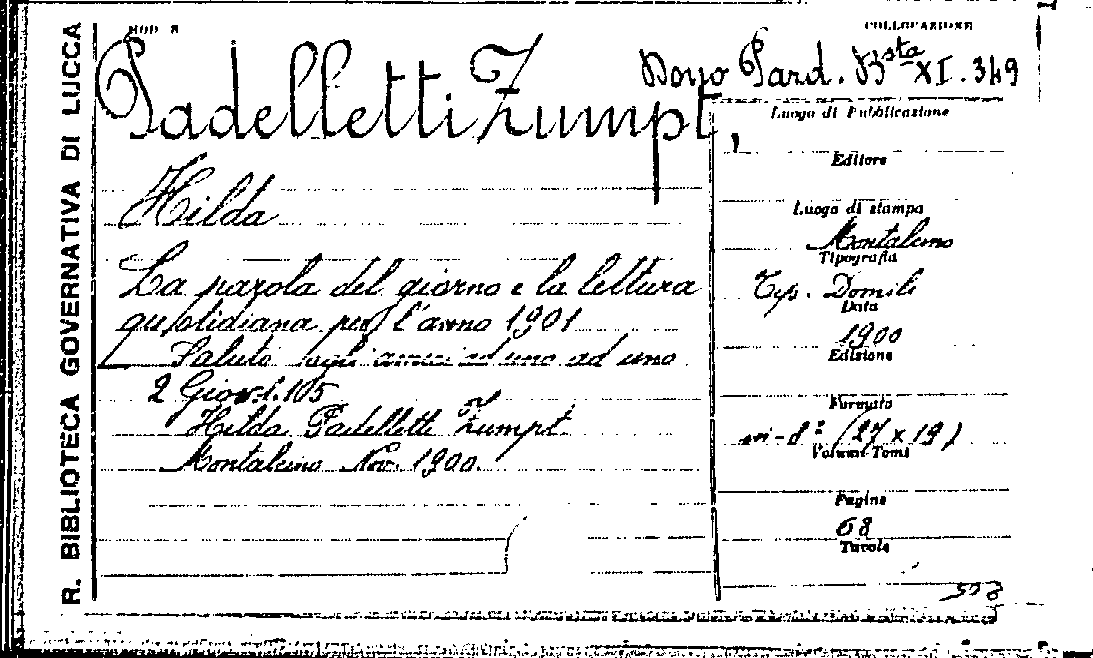 R. BIBLIOTECA GOVERNATIVA DI LUCCA
MOD
COLLOCAZIONE
Dono Pard. Bsta XI. 349
Padelletti Zumpt,
Hilda
La parola del giorno e la lettura
quotidiana per l'anno 1901
Saluto agli amici ad uno ad uno
2 Giov. 1. 105
Hilda Padelletti Zumpt
Montalcino Nov. 1900.
Luogo di Pubblicazione
Editore
Luogo di stampa
Montalcino
Tipografia
Tip. Donili
Data
1900
Edizione
Formato
in-8° (27 x 19)
Volumi-Tomi
Pagine
68
Tavole